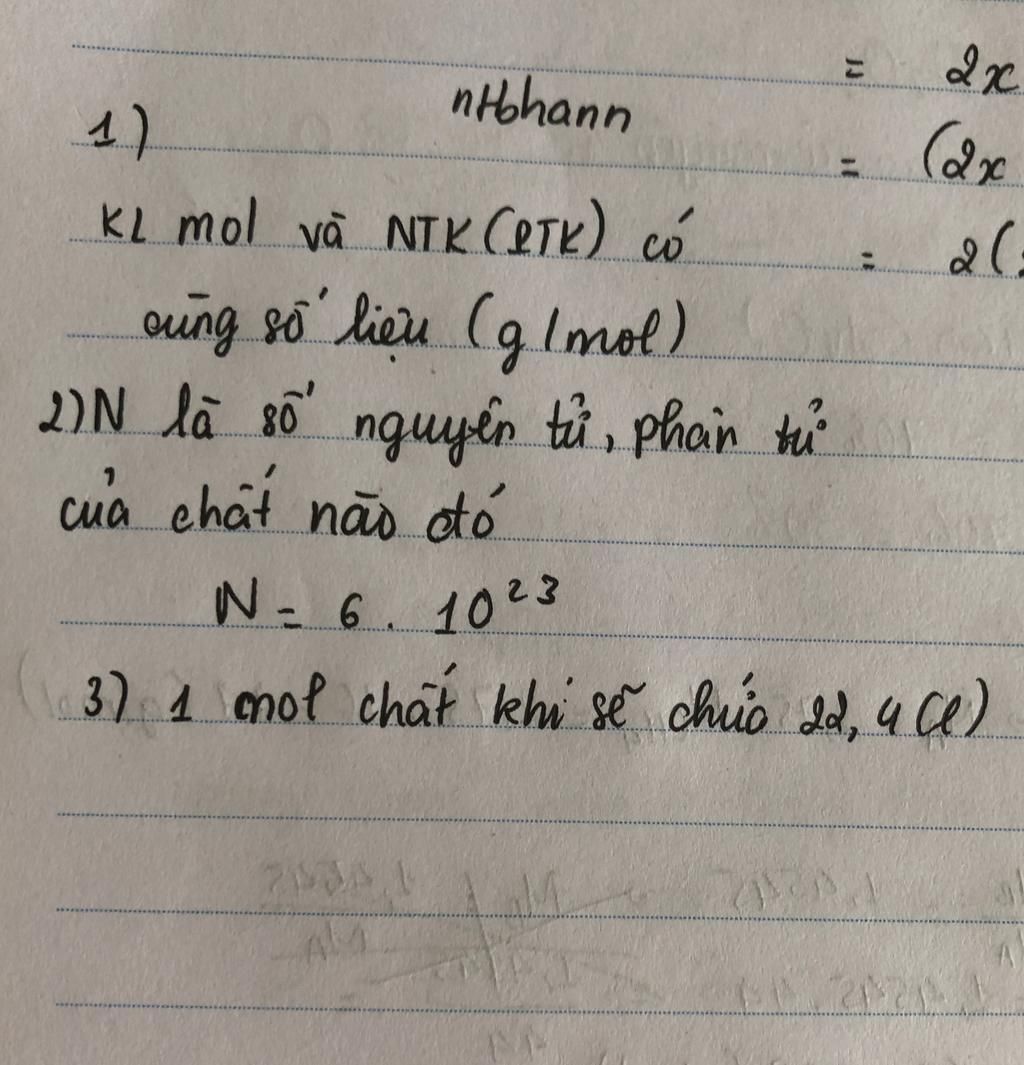 = 2x
nHbhann
1)
= (2x
KL mol và NTK (PTK) có
= 2(
cùng số liệu (g/mol)
2) N là số nguyên tử, phân tử
của chất nào đó
N = 6 . 10²³
3) 1 mol chất khí sẽ chứa 22,4(l)